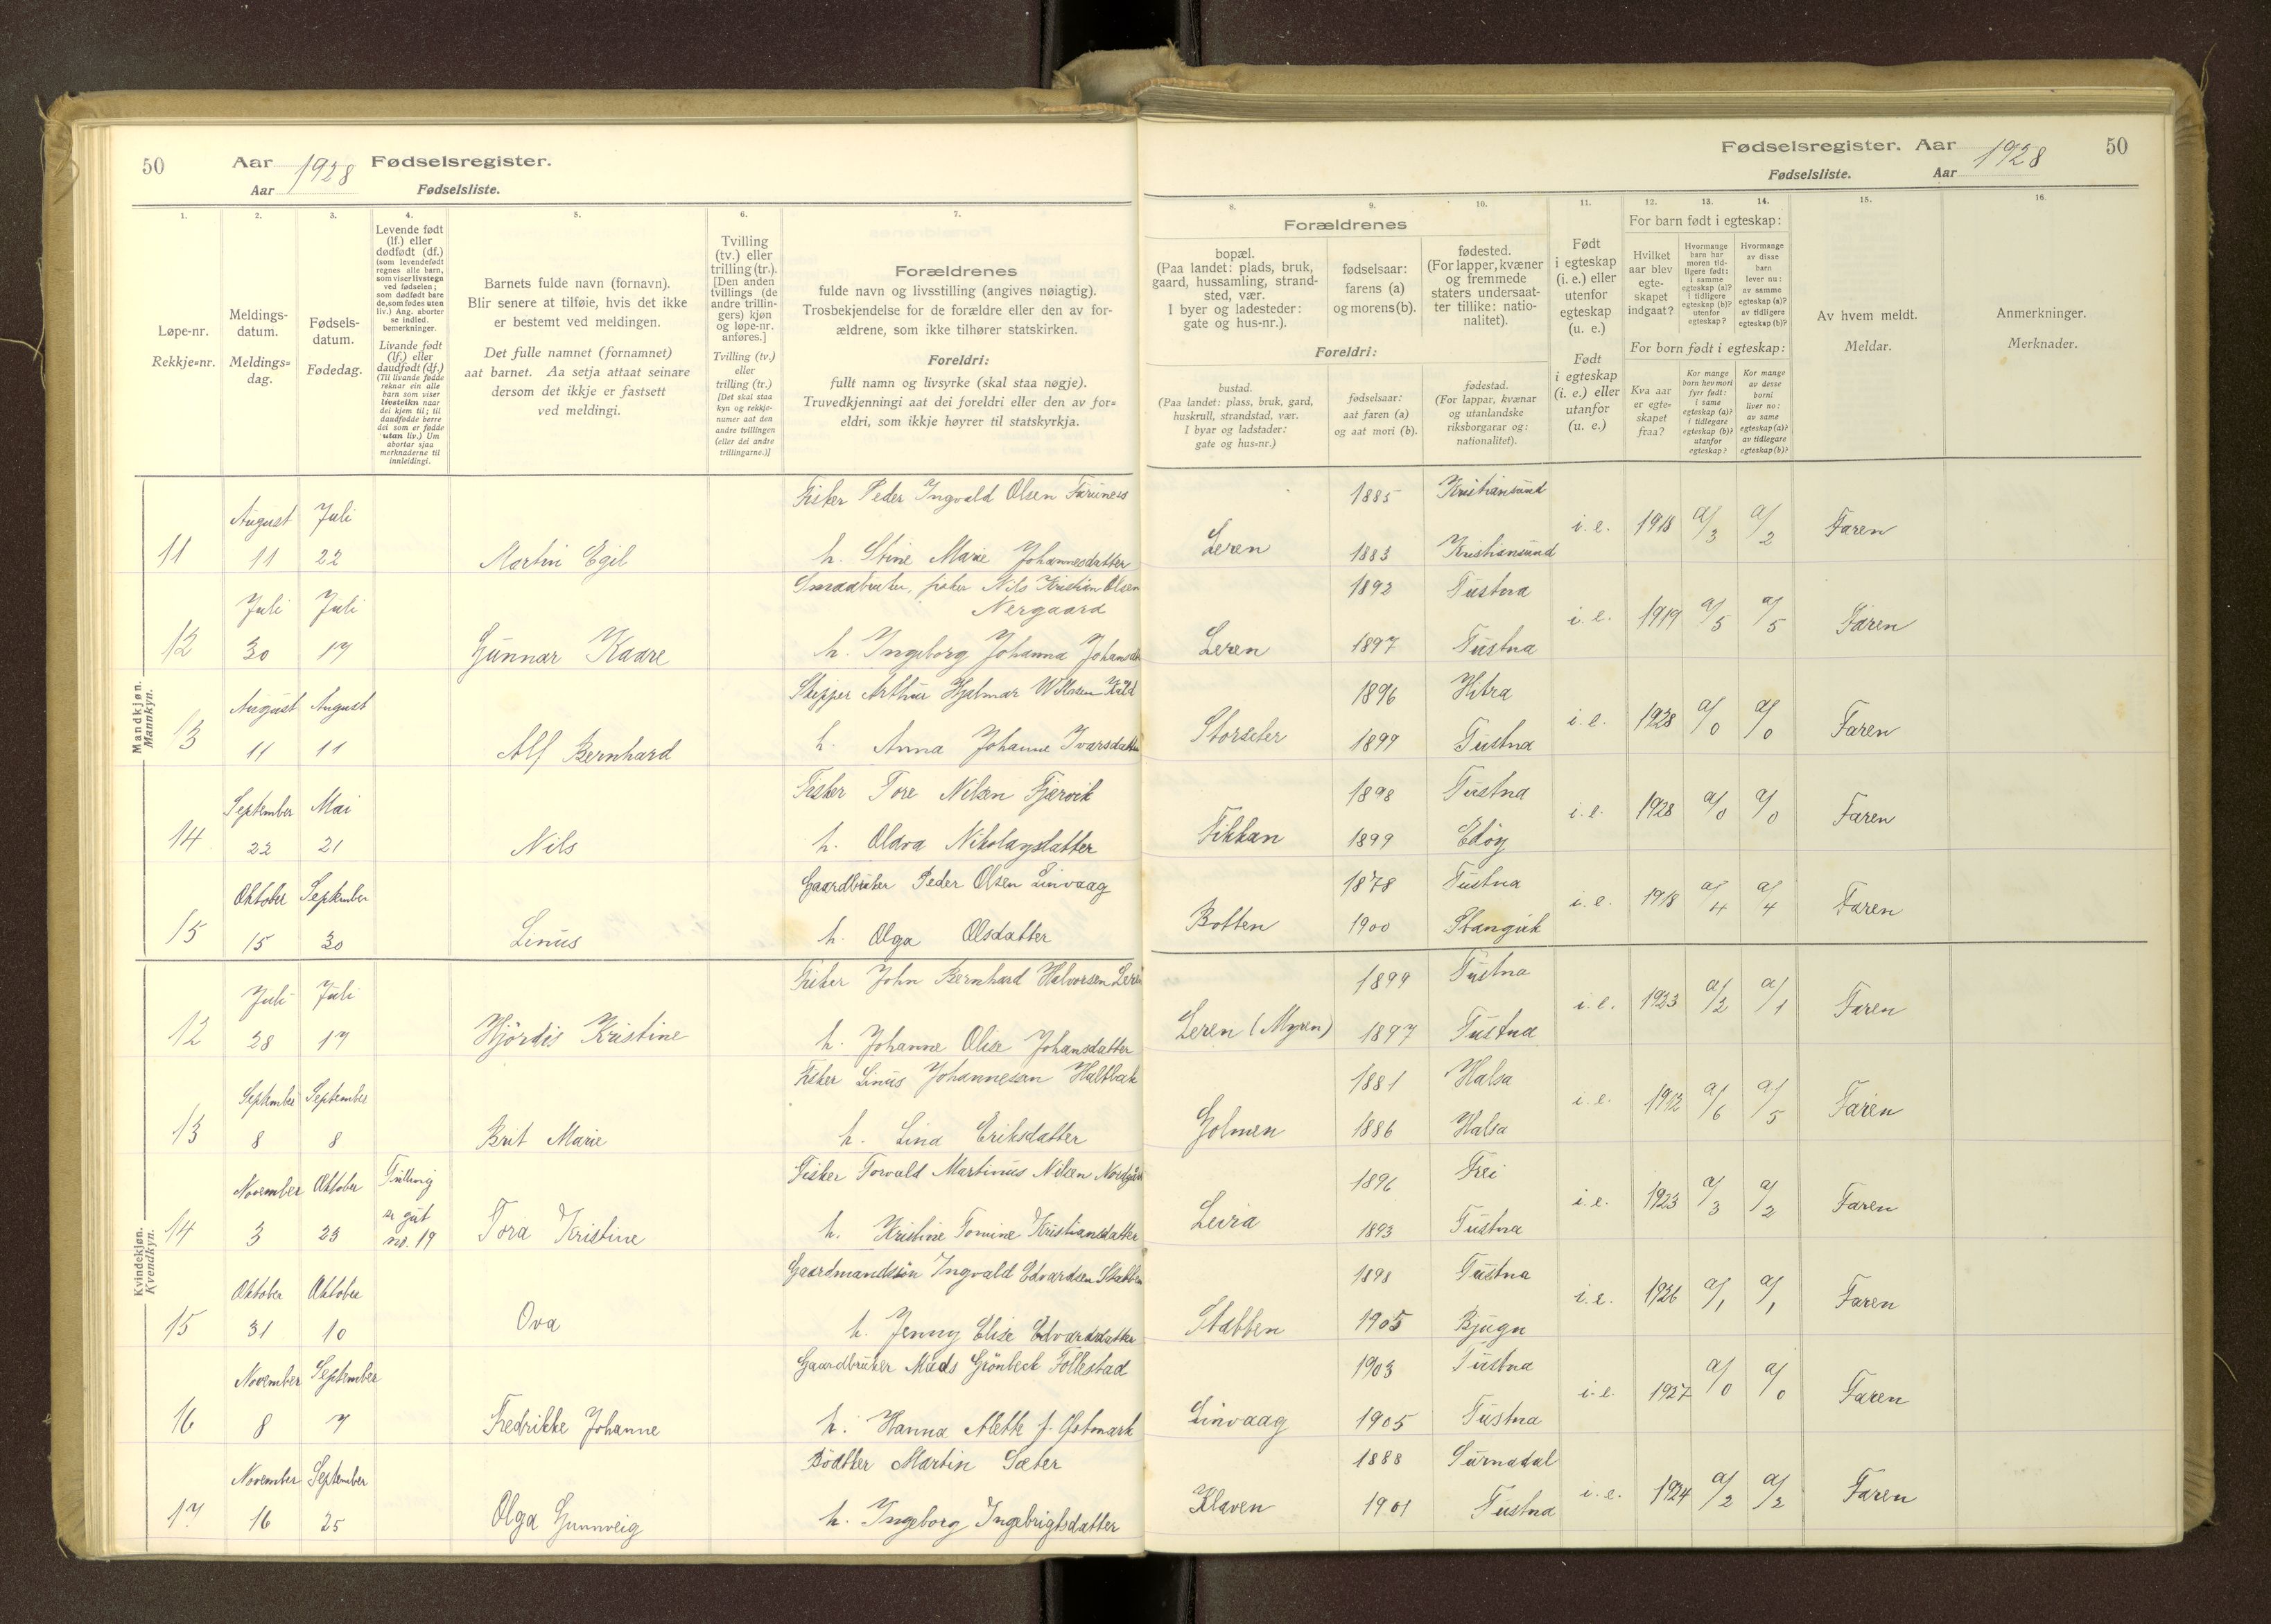 50
Aar 1928 Fødselsregister.
Aar Fødselsliste.
Fødselsregister. Aar 1928
50
Fødselsliste. Aar
1.
Løpe-nr.
Rekkje=nr.
2.
Meldings-
datum.
Meldings=
dag.
3.
Fødsels-
datum.
Fødedag.
4.
Levende født
(lf.) eller
dødfødt (df.)
(som levendefødt
regnes alle barn,
som viser livstegn
ved fødselen;
som dødfødt bare
de, som fødes uten
liv.) Ang. aborter
se indled.
bemerkninger.
Livande født
(lf.) eller
daudfødt (df.)
(Til livande fødde
reknar ein alle
barn som viser
livsteikn naar
dei kjem til; til
daudfødde berre
dei som er fødde
utan liv.) Um
abortar sjaa
merknaderne til
innleidingi.
5.
Barnets fulde navn (fornavn).
Blir senere at tilføie, hvis det ikke
er bestemt ved meldingen.
Det fulle namnet (fornamnet)
aat barnet. Aa setja attaat seinare
dersom det ikkje er fastsett
ved meldingi.
6.
Tvilling
(tv.) eller
trilling (tr.).
[Den anden
tvillings (de
andre trillin-
gers) kjøn
og løpe-nr.
anføres.]
Tvilling (tv.)
eller
trilling (tr.)
[Det skal staa
kyn og rekkje-
numer aat den
andre tvillingen
(eller dei andre
trillingarne.)]
7.
Forældrenes
fulde navn og livsstilling (angives nøiagtig).
Trosbekjendelse for de forældre eller den av for-
ældrene, som ikke tilhører statskirken.
Foreldri:
fullt namn og livsyrke (skal staa nøgje).
Truvedkjenningi aat dei foreldri eller den av for=
eldri, som ikkje høyrer til statskyrkja.
Forældrenes
8.
bopæl.
(Paa landet: plads, bruk,
gaard, hussamling, strand-
sted, vær.
I byer og ladesteder:
gate og hus-nr.).
9.
fødselsaar:
farens (a)
og morens (b).
10.
fødested.
(For lapper, kvæner
og fremmede
staters undersaat-
ter tillike: natio-
nalitet).
Foreldri:
bustad.
(Paa landet: plass, bruk, gard,
huskrull, strandstad, vær.
I byar og ladstader:
gate og hus=nr.)
fødselsaar:
aat faren (a)
og aat mori (b).
fødestad.
(For lappar, kvænar
og utanlandske
riksborgarar og:
nationalitet).
11.
Født
i egteskap
(i. e.) eller
utenfor
egteskap
(u. e.)
Født
i egteskap
(i. e.) eller
utanfor
(u. e.)
12. 13. 14.
For barn født i egteskap:
Hvilket
aar blev
egte-
skapet
indgaat?
Hvormange
barn har
moren tid-
ligere født:
i samme
egteskap (a)?
i tidligere
egteskap (b)?
utenfor
egteskap?
Hvormange
av disse
barn
lever nu:
av samme
egteskap (a)?
av tidligere
egteskap (b)?
For born født i egteskap:
Kva aar
er egte-
skapet
fraa?
Kor mange
born hev mori
fyrr født:
i same
egteskap (a)?
i tidlegare
egteskap (b)?
utanfor
egteskap?
Kor mange
av desse
borni
liver no:
av same
egteskap (a)?
av tidlegare
egteskap (b)?
15.
Av hvem meldt.
Meldar.
16.
Anmerkninger.
Merknader.
Mandkjøn.
Mannkyn.
11 August 11 Juli 22 Martin Egil
Fisker Peder Ingvald Olsen
h. Stine Marie Johannesdatter
Leren 1885 Kristiansund
1883 Kristiansund
i. e. 1918 a/3 a/2 Faren
12 Juli 30 Juli 17 Gunnar Kaare
Smaabruker, fisker Nils Kristian Olsen
Nergaard
h. Ingeborg Johanna
Leren 1892 Tustna
1897 Tustna
i. e. 1919 a/5 a/5 Faren
13 August 11 August 11 Alf Bernhard
Skipper Arthur Hjalmar
h. Anna Johanne Ivarsdatter
Storseter 1896 Hitra
1899 Tustna
i. e. 1928 a/0 a/0 Faren
14 September 22 Mai 21 Nils
Fisker Tore Nilsen Fjærvik
h. Oldra Nikolaysdatter
Fikkan 1898 Tustna
1899 Edöy
i. e. 1928 a/0 a/0 Faren
15 Oktober 15 September 30 Linus
Gaardbruker Peder Olsen Linvaag
h. Olga Olsdatter
Botten 1878 Tustna
1900 Stangvik
i. e. 1918 a/4 a/4 Faren
Kvindekjøn.
Kvendkyn.
12 Juli 28 Juli 17 Hjördis Kristine
Fisker John Bernhard Halvorsen Leren
h. Johanne Olise Johansdatter
Leren (Myren) 1899 Tustna
1897 Tustna
i. e. 1923 a/2 a/1 Faren
13 September 8 September 8 Brit Marie
Fisker Linus Johannesen Haltbak
h. Lina Eriksdatter
Golmen 1881 Halsa
1886 Halsa
i. e. 1912 a/6 a/5 Faren
14 November 3 Oktober 23 Tvilling
no. 19 Tora Kristine
Fisker Torvald Martinus Nilsen
h. Kristine Tomine Kristiansdatter
Leira 1896 Frei
1893 Tustna
i. e. 1923 a/3 a/2 Faren
15 Oktober 31 Oktober 10 Ova
Gaardmandssön Ingvald Edvardsen Stabben
h. Jenny Elise Edvardsdatter
Stabben 1898 Tustna
1905 Bjugn
i. e. 1926 a/1 a/1 Faren
16 November 8 September 7 Fredrikke Johanne
Gaardbruker Mads Grönbeck Follestad
h. Hanna Alette f. Östmark
Linvaag 1903 Tustna
1905 Tustna
i. e. 1927 a/0 a/0 Faren
17 November 16 September 25 Olga Gunnveig
Bödtker Martin Sæter
h. Ingeborg Ingebrigtsdatter
Klaven 1888 Surnadal
1901 Tustna
i. e. 1924 a/2 a/2 Faren